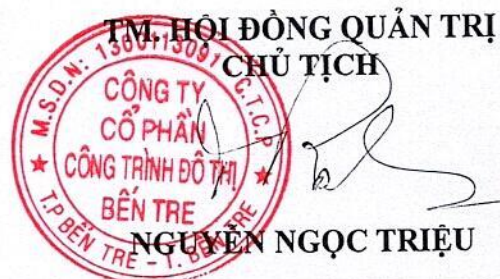 TM. HỘI ĐỒNG QUẢN TRỊ
CHỦ TỊCH
M.S.D.N: 1300113091 - C.T.C.P
CÔNG TY
CỔ PHẦN
CÔNG TRÌNH ĐÔ THỊ
BẾN TRE
T.P BẾN TRE - T. BẾN TRE
NGUYỄN NGỌC TRIỆU